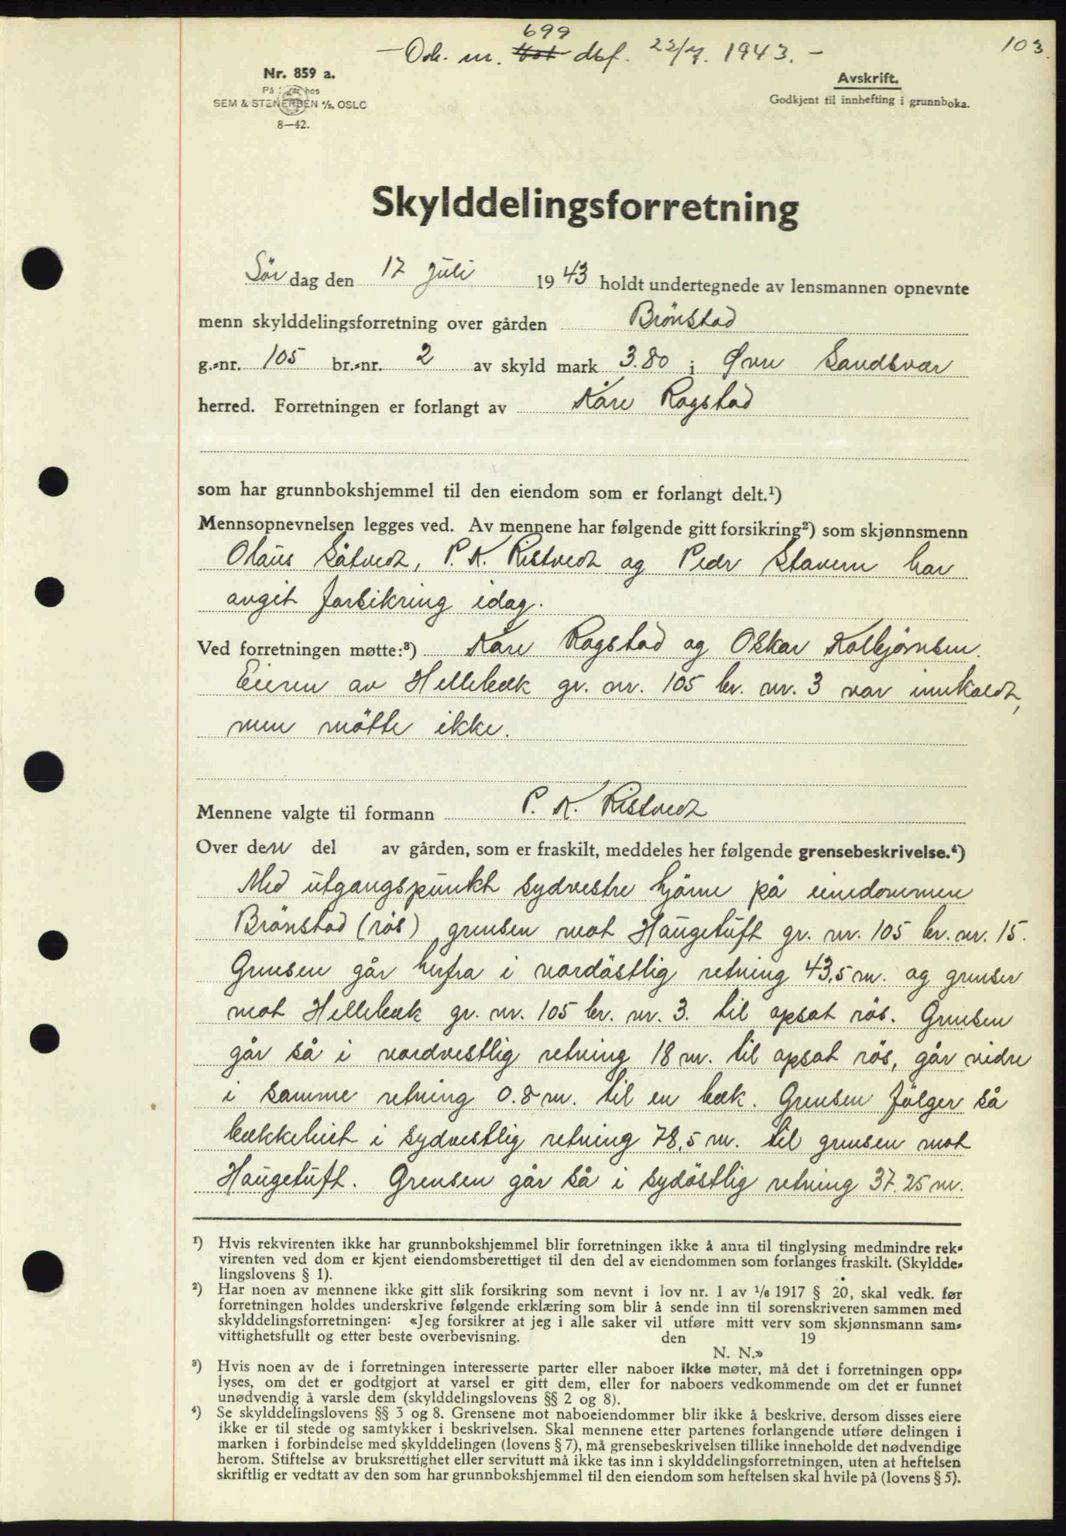 699
— Dok. nr. dbf. 22/7. 1943. —
103.
Nr. 859 a.
På hos
SEM & STENERSEN A/S, OSLO
8—42.
Avskrift.
Godkjent til innhefting i grunnboka.
Skylddelingsforretning
Lör dag den 17 Juli 1943 holdt undertegnede av lensmannen opnevnte
menn skylddelingsforretning over gården Brönstad
g.-nr. 105 br.-nr. 2 av skyld mark 3.80 i Øvre Sandsvær
herred. Forretningen er forlangt av Kåre Rogstad
som har grunnbokshjemmel til den eiendom som er forlangt delt.¹)
Mennsopnevnelsen legges ved. Av mennene har følgende gitt forsikring²) som skjønnsmenn
Olaus Såtvedt, P. K. Ristvedt og Peder Stavem har
avgit forsikring idag.
Ved forretningen møtte:³) Kåre Rogstad og Oskar Kolbjørnsen.
Eieren av Hellebæk gr. nr. 105 br. nr. 3 var innkaldt,
men mötte ikke.
Mennene valgte til formann P. K. Ristvedt
Over den del av gården, som er fraskilt, meddeles her følgende grensebeskrivelse.⁴)
Med utgangspunkt sydvestre hjörne på eiendommen
Brönstad (rös) grensen mot Haugetuft gr. nr. 105 br. nr. 15.
Grensen går herfra i nordöstlig retning 43,5 m. og grenser
mot Hellebæk gr. nr. 105 br. nr. 3. til opsat rös. Grensen
går så i nordvestlig retning 18 m. til opsat rös, går vidre
i samme retning 0.8 m. til en bæk. Grensen fölger så
bækkeleiet i sydvestlig retning 78,5 m. til grensen mot
Haugetuft. Grensen går så i sydöstlig retning 37.25 m.
¹) Hvis rekvirenten ikke har grunnbokshjemmel blir forretningen ikke å anta til tinglysing medmindre rek-
virenten ved dom er kjent eiendomsberettiget til den del av eiendommen som forlanges fraskilt. (Skyldde-
lingslovens § 1).
²) Har noen av mennene ikke gitt slik forsikring som nevnt i lov nr. 1 av 1/6 1917 § 20, skal vedk. før
forretningen holdes underskrive følgende erklæring som blir å sende inn til sorenskriveren sammen med
skylddelingsforretningen: «Jeg forsikrer at jeg i alle saker vil utføre mitt verv som skjønnsmann sam-
vittighetsfullt og etter beste overbevisning. den 19
N. N.»
³) Hvis noen av de i forretningen interesserte parter eller naboer ikke møter, må det i forretningen opp-
lyses, om det er godtgjort at varsel er gitt dem, eller for naboers vedkommende om det er funnet
unødvendig å varsle dem (skylddelingslovens §§ 2 og 8).
⁴) Se skylddelingslovens §§ 3 og 8. Grensene mot naboeiendommer blir ikke å beskrive, dersom disses eiere
ikke er til stede og samtykker i beskrivelsen. Skal mennene etter partenes forlangende utføre delingen i
marken i forbindelse med skylddelingen (lovens § 7), må grensebeskrivelsen tillike inneholde det nødvendige
herom. Stiftelse av bruksrettighet eller servitutt må ikke tas inn i skylddelingsforretningen, uten at heftelsen
skriftlig er vedtatt av den som har grunnbokshjemmel til den eiendom som heftelsen skal hvile på (lovens § 5).